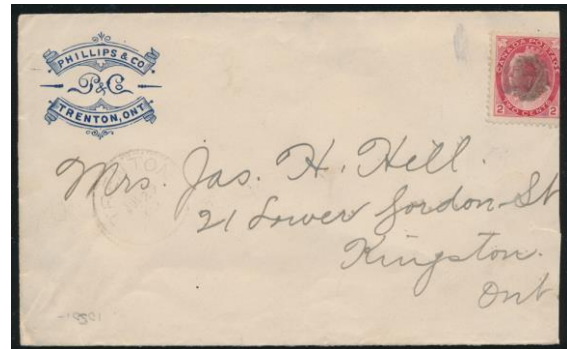 PHILLIPS & CO
P & Co
TRENTON, ONT.
CANADA POSTAGE
2 CENTS 2
Mrs. Jas. H. Hill.
21 Lower Gordon St
Kingston.
Ont.